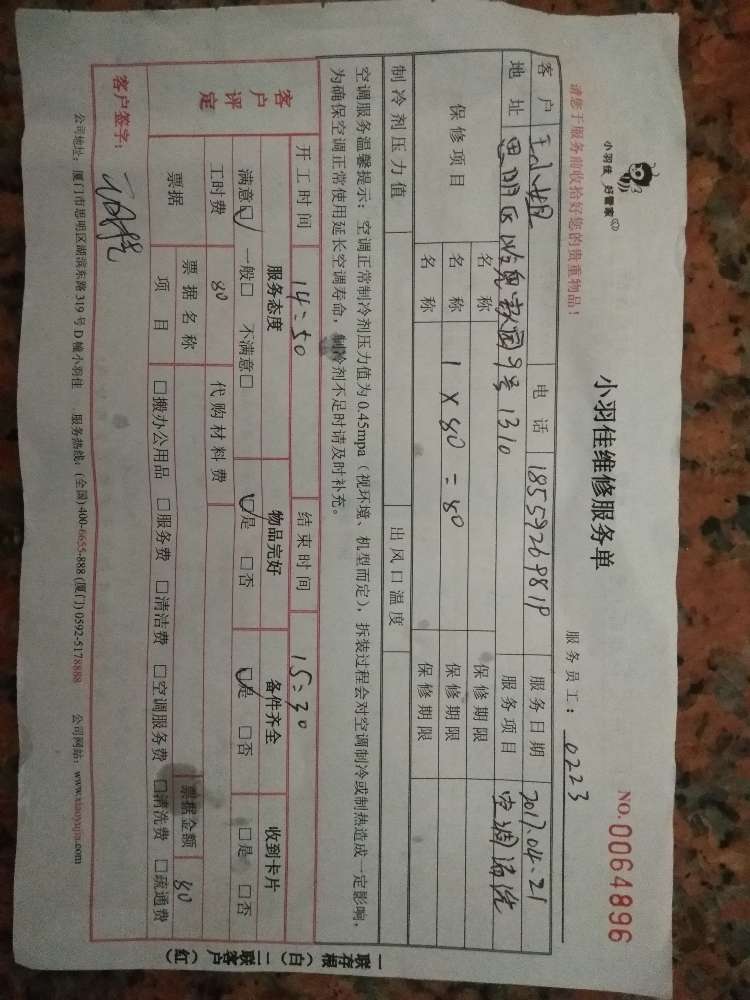 小羽佳 好管家
小羽佳维修服务单
NO.0064896
请您于服务前收拾好您的贵重物品！
服务员工：0223
客户 王小姐 电话 服务日期 2017.04.21
地址 思明区 9号1310 服务项目 空调清洗
保修项目 名称 保修期限
名称 1×80=80 保修期限
名称 保修期限
制冷剂压力值 出风口温度
空调服务温馨提示：空调正常制冷剂压力值为0.45mpa（视环境、机型而定），拆装过程会对空调制冷或制热造成一定影响，
为确保空调正常使用延长空调寿命，制冷剂不足时请及时补充。
开工时间 14:50 结束时间 15:30
客户评定 服务态度 物品完好 备件齐全 收到卡片
满意☑ 一般□ 不满意□ ☑是 □否 ☑是 □否 □是 □否
工时费 80 代购材料费 票据金额 80
票据 票据名称
项目 □搬办公用品 □服务费 □清洁费 □空调服务费 □清洗费 □疏通费
客户签字：
公司地址：厦门市思明区湖滨东路319号D幢小羽佳 服务热线：(全国)400-6655-888 (厦门)0592-5178888 公司网站：www.xiaoyujia.com
一联存根（白） 二联客户（红）